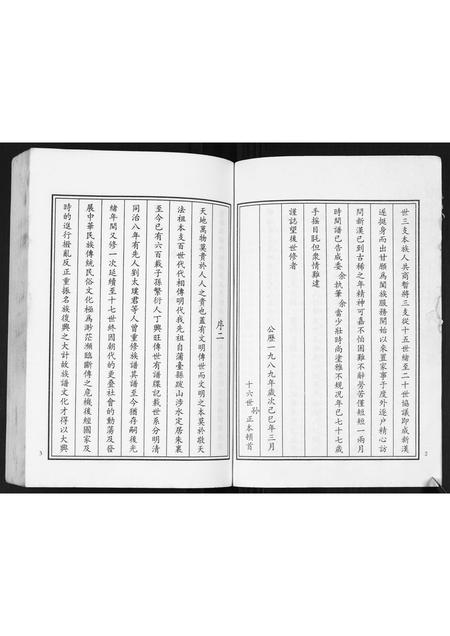 世三支本族人共商暫將三支從十五世緒至二十世協議即成新漢
遂挺身而出甘願為闔族服務開始以來置家事于度外逐戶精心訪
問新漢已到古稀之年精神可嘉不怕困難不辭勞苦僅短短一兩月
時間譜已告成委余執筆余當少壯時尚塗雅不規况年已七十七歲
手摇目眊但衆情難違
謹誌望後世修者
公歷一九八九年歲次己巳年三月
十六世孙正本頓首
2
序二
天地萬物莫貴於人人之貴也蓋有文明傳世而文明之本莫於敬天
法祖本支百世代代相傳明代我先祖自蒲臺縣跋山涉水定居朱裏
至今已有六百載子孫繁衍人丁興旺傳世有譜牒記載世系分明清
同治八年有先人劉太璞君等人曾重修族譜其譜至今猶存嗣後光
緒年間又修一次延續至十七世終因朝代的更叠社會的動蕩及發
展中華民族傳統民俗文化極爲渺茫瀕臨斷傳之危機後經國家及
時的進行撥亂反正重振名族復興之大計故族譜文化才得以大興
3